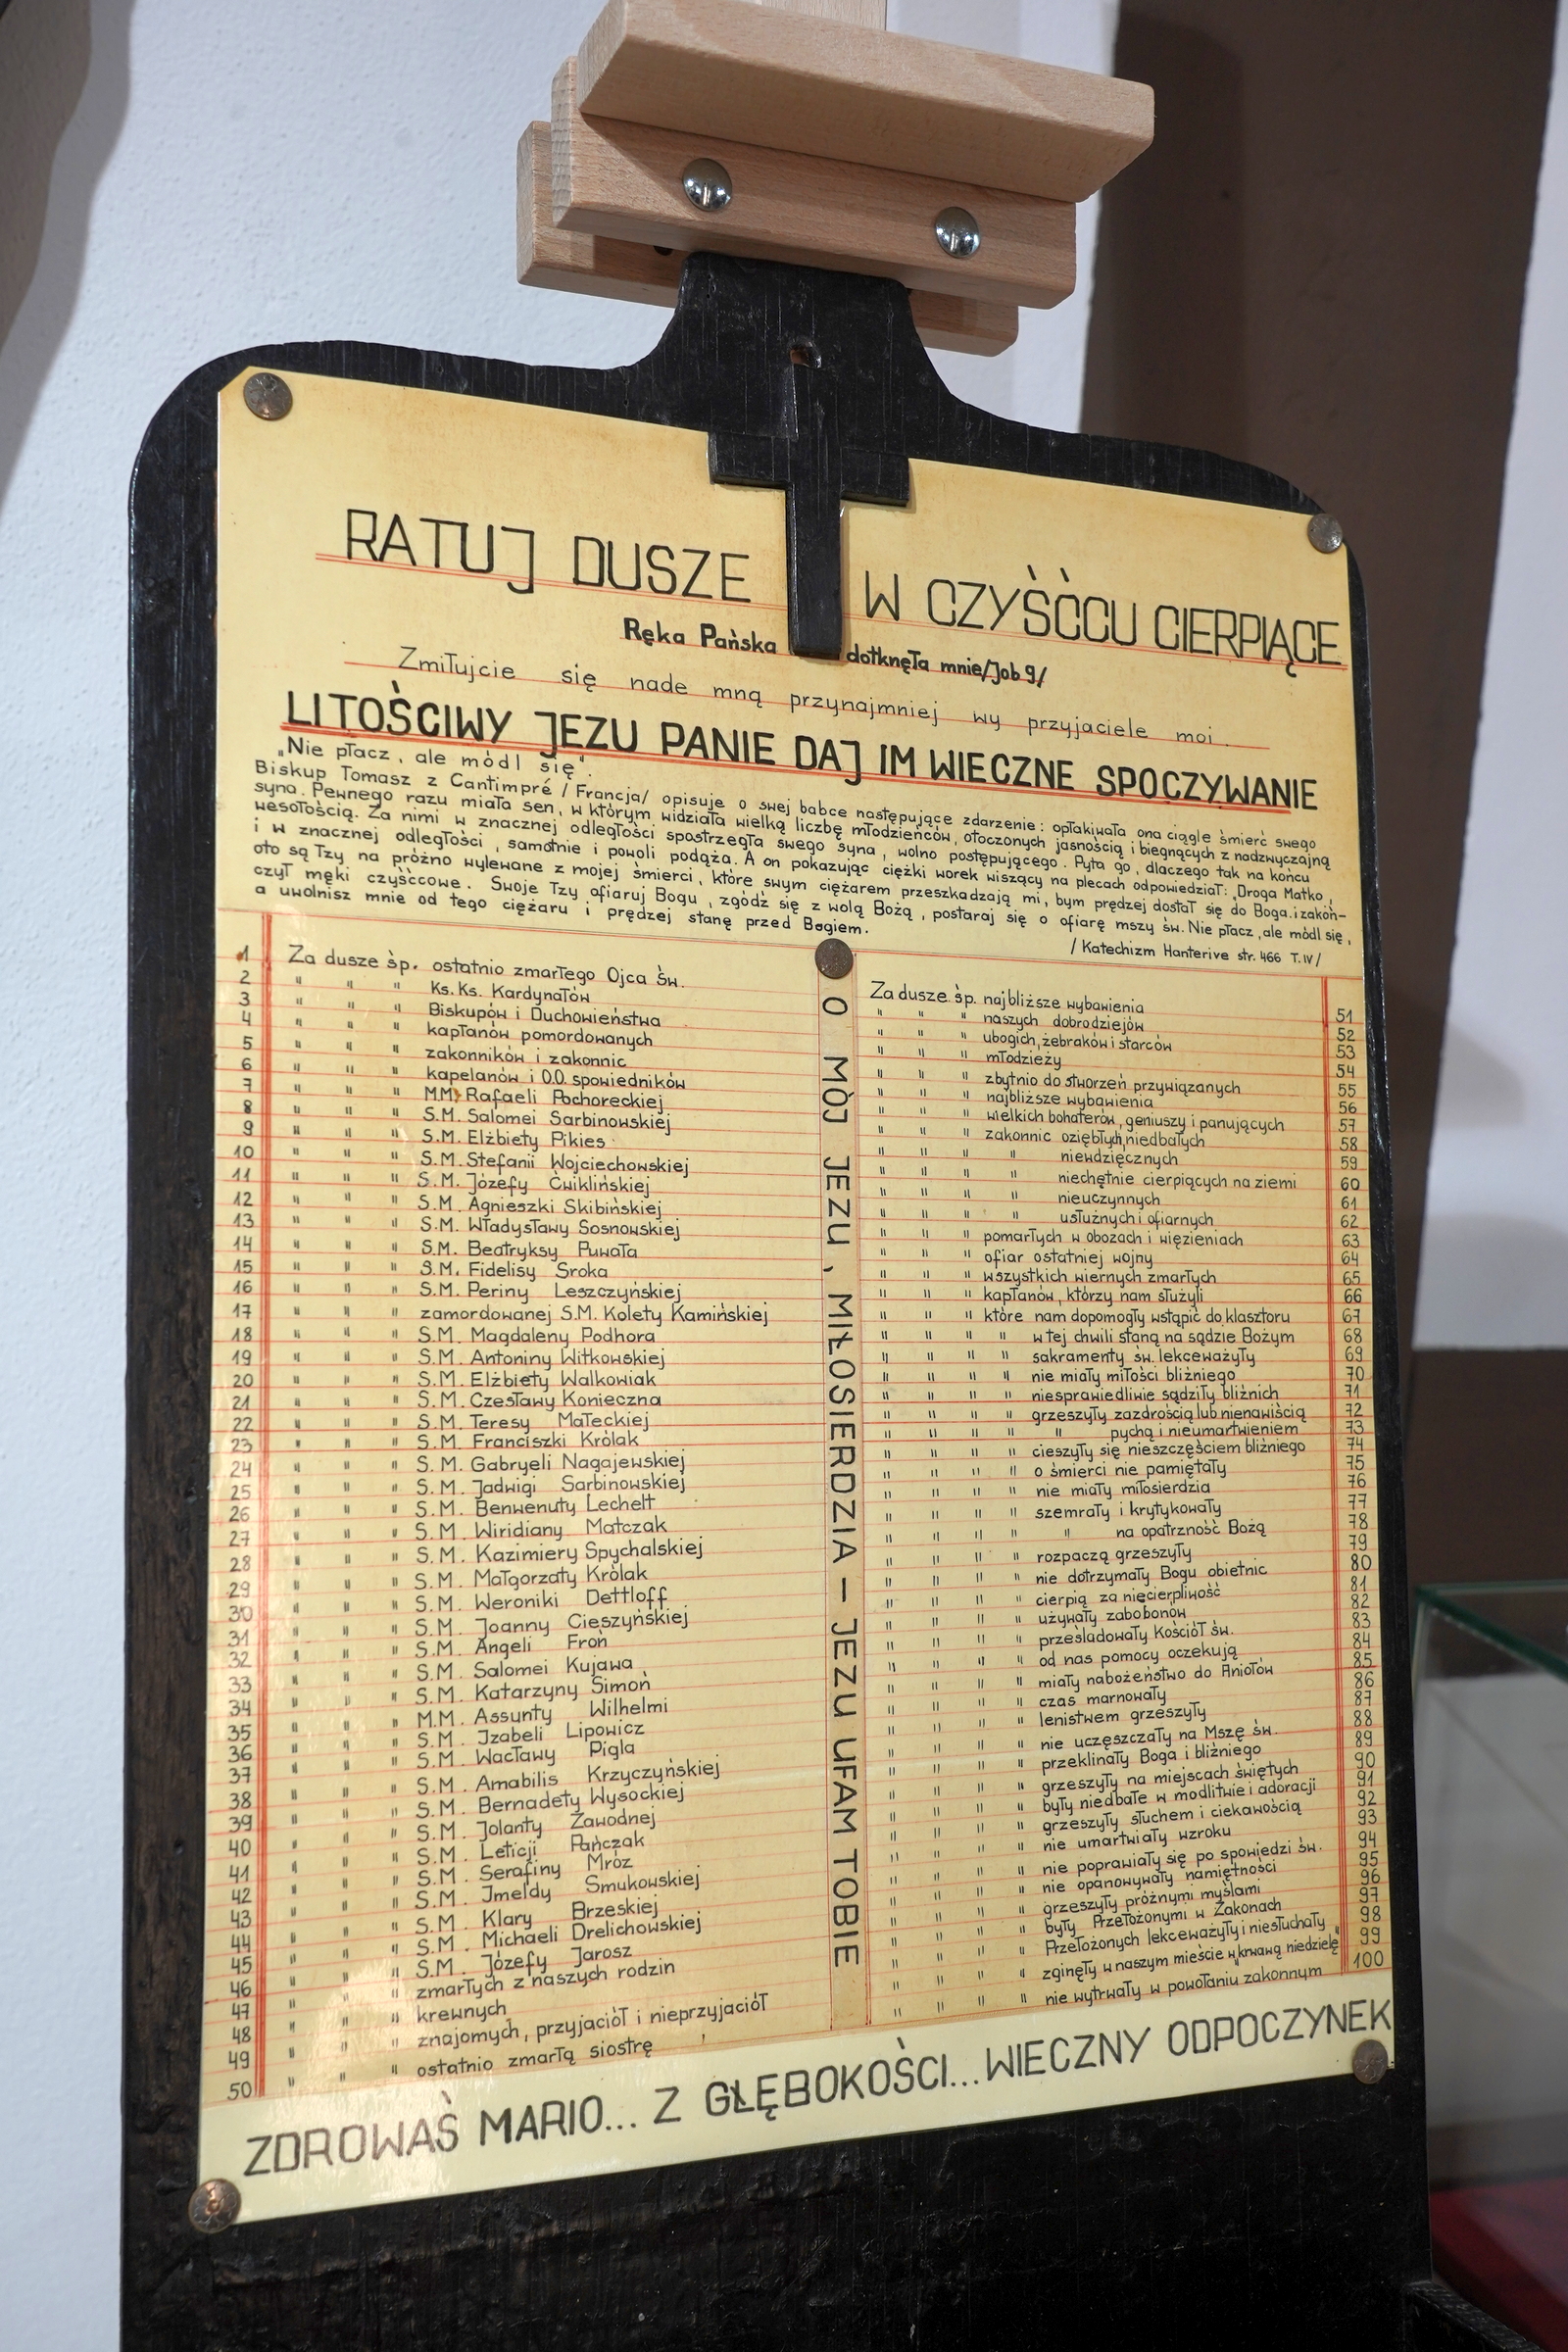 RATUJ DUSZE W CZYŚĆCU CIERPIĄCE
Ręka Pańska dotknęła mnie/Job 9/
Zmiłujcie się nade mną przynajmniej wy przyjaciele moi.
LITOŚCIWY JEZU PANIE DAJ IM WIECZNE SPOCZYWANIE
„Nie płacz, ale módl się".
Biskup Tomasz z Cantimpré /Francja/ opisuje o swej babce następujące zdarzenie: opłakiwała ona ciągle śmierć swego
syna. Pewnego razu miała sen, w którym widziała wielką liczbę młodzieńców, otoczonych jasnością i biegnących z nadzwyczajną
wesołością. Za nimi w znacznej odległości spostrzegła swego syna, wolno postępującego. Pyta go, dlaczego tak na końcu
i w znacznej odległości, samotnie i powoli podąża. A on pokazując ciężki worek wiszący na plecach odpowiedział: „Droga Matko,
oto są łzy na próżno wylewane z mojej śmierci, które swym ciężarem przeszkadzają mi, bym prędzej dostał się do Boga i zakoń-
czył męki czyśćcowe. Swoje łzy ofiaruj Bogu, zgódź się z wolą Bożą, postaraj się o ofiarę mszy św. Nie płacz, ale módl się,
a uwolnisz mnie od tego ciężaru i prędzej stanę przed Bogiem.
/Katechizm Hanterive str. 466 T.IV/
1 Za dusze śp. ostatnio zmarłego Ojca Św.
2 " " " Ks. Ks. Kardynałów
3 " " " Biskupów i Duchowieństwa
4 " " " kapłanów pomordowanych
5 " " " zakonników i zakonnic
6 " " " kapelanów i O.O. spowiedników
7 " " " M.M. Rafaeli Pochoreckiej
8 " " " S.M. Salomei Sarbinowskiej
9 " " " S.M. Elżbiety Pikies
10 " " " S.M. Stefanii Wojciechowskiej
11 " " " S.M. Józefy Ćwiklińskiej
12 " " " S.M. Agnieszki Skibińskiej
13 " " " S.M. Władysławy Sosnowskiej
14 " " " S.M. Beatryksy Puwała
15 " " " S.M. Fidelisy Sroka
16 " " " S.M. Periny Leszczyńskiej
17 " " " zamordowanej S.M. Kolety Kamińskiej
18 " " " S.M. Magdaleny Podhora
19 " " " S.M. Antoniny Witkowskiej
20 " " " S.M. Elżbiety Walkowiak
21 " " " S.M. Czesławy Konieczna
22 " " " S.M. Teresy Małeckiej
23 " " " S.M. Franciszki Królak
24 " " " S.M. Gabryeli Nagajewskiej
25 " " " S.M. Jadwigi Sarbinowskiej
26 " " " S.M. Benwenuty Lechelt
27 " " " S.M. Wiridiany Matczak
28 " " " S.M. Kazimiery Spychalskiej
29 " " " S.M. Małgorzaty Królak
30 " " " S.M. Weroniki Dettloff
31 " " " S.M. Joanny Cieszyńskiej
32 " " " S.M. Angeli Froń
33 " " " S.M. Salomei Kujawa
34 " " " S.M. Katarzyny Simon
35 " " " M.M. Assunty Wilhelmi
36 " " " S.M. Izabeli Lipowicz
37 " " " S.M. Wacławy Pigla
38 " " " S.M. Amabilis Krzyczyńskiej
39 " " " S.M. Bernadety Wysockiej
40 " " " S.M. Jolanty Zawodnej
41 " " " S.M. Leticji Pańczak
42 " " " S.M. Serafiny Mróz
43 " " " S.M. Imeldy Smukowskiej
44 " " " S.M. Klary Brzeskiej
45 " " " S.M. Michaeli Drelichowskiej
46 " " " S.M. Józefy Jarosz
47 " " " zmarłych z naszych rodzin
48 " " " krewnych
49 " " " znajomych, przyjaciół i nieprzyjaciół
50 " " " ostatnio zmarłą siostrę
O MÓJ JEZU, MIŁOSIERDZIA – JEZU UFAM TOBIE
Za dusze śp. najbliższe wybawienia 51
" " " naszych dobrodziejów 52
" " " ubogich, żebraków i starców 53
" " " młodzieży 54
" " " zbytnio do stworzeń przywiązanych 55
" " " najbliższe wybawienia 56
" " " wielkich bohaterów, geniuszy i panujących 57
" " " zakonnic oziębłych, niedbałych 58
" " " " niewdzięcznych 59
" " " " niechętnie cierpiących na ziemi 60
" " " " nieuczynnych 61
" " " " usłużnych i ofiarnych 62
" " " pomarłych w obozach i więzieniach 63
" " " ofiar ostatniej wojny 64
" " " wszystkich wiernych zmarłych 65
" " " kapłanów, którzy nam służyli 66
" " " które nam dopomogły wstąpić do klasztoru 67
" " " " w tej chwili staną na sądzie Bożym 68
" " " " sakramenty św. lekceważyły 69
" " " " nie miały miłości bliźniego 70
" " " " niesprawiedliwie sądziły bliźnich 71
" " " " grzeszyły zazdrością lub nienawiścią 72
" " " " " pychą i nieumartwieniem 73
" " " " cieszyły się nieszczęściem bliźniego 74
" " " " o śmierci nie pamiętały 75
" " " " nie miały miłosierdzia 76
" " " " szemrały i krytykowały 77
" " " " " na opatrzność Bożą 78
" " " " rozpaczą grzeszyły 79
" " " " nie dotrzymały Bogu obietnic 80
" " " " cierpią za niecierpliwość 81
" " " " używały zabobonów 82
" " " " prześladowały Kościół św. 83
" " " " od nas pomocy oczekują 84
" " " " miały nabożeństwo do Aniołów 85
" " " " czas marnowały 86
" " " " lenistwem grzeszyły 87
" " " " nie uczęszczały na Mszę św. 88
" " " " przeklinały Boga i bliźniego 89
" " " " grzeszyły na miejscach świętych 90
" " " " były niedbałe w modlitwie i adoracji 91
" " " " grzeszyły słuchem i ciekawością 92
" " " " nie umartwiały wzroku 93
" " " " nie poprawiały się po spowiedzi św. 94
" " " " nie opanowywały namiętności 95
" " " " grzeszyły próżnymi myślami 96
" " " " były Przełożonymi w Zakonach 97
" " " " Przełożonych lekceważyły i niesłuchały 98
" " " " zginęły w naszym mieście w „krwawą niedzielę" 99
" " " " nie wytrwały w powołaniu zakonnym 100
ZDROWAŚ MARIO... Z GŁĘBOKOŚCI... WIECZNY ODPOCZYNEK